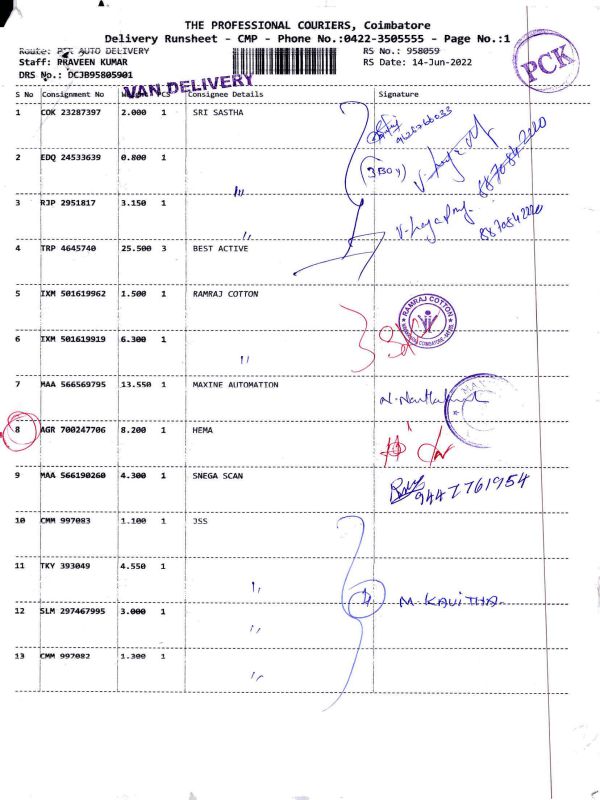 THE PROFESSIONAL COURIERS, Coimbatore
Delivery Runsheet - CMP - Phone No.:0422-3505555 - Page No.:1
Route: AUTO DELIVERY
Staff: PRAVEEN KUMAR
DRS No.: DCJB95805901
RS No.: 958059
RS Date: 14-Jun-2022
PCK
VAN DELIVERY
S No Consignment No Weight PCS Consignee Details Signature
1 COK 23287397 2.000 1 SRI SASTHA
2 EDQ 24533639 0.800 1 "
(3 BOY)
8870842220
3 RJP 2951817 3.150 1 "
8870842220
4 TRP 4645740 25.500 3 BEST ACTIVE
5 IXM 501619962 1.500 1 RAMRAJ COTTON
RAMRAJ COTTON
6 IXM 501619919 6.300 1 "
7 MAA 566569795 13.550 1 MAXINE AUTOMATION
8 AGR 700247706 8.200 1 HEMA
9 MAA 566190260 4.300 1 SNEGA SCAN
9447761954
10 CMM 997083 1.100 1 JSS
11 TKY 393049 4.550 1 "
4 M. KAVITHA.
12 SLM 297467995 3.000 1 "
13 CMM 997082 1.300 1 "